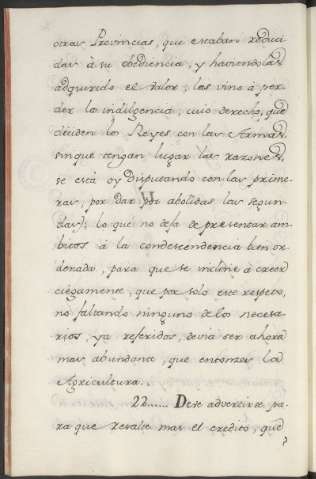 otras Provincias, que estaban reduci
das à su obediencia, y haviendolas
adquirido el valor; las vino à per
der la indulgencia, cuio derecho, que
deciden los Reyes con las Armas,
sin que tengan lugar las razones,
se está oy Disputando con las prime
ras, por dar por abolidas las segun
das): lo que no deja de presentar am
bitos à la condescendencia bien or
denada, para que se incline à creer
ciegamente, que por solo este respeto,
no faltando ninguno de los necesa
rios, ya referidos, devia ser ahora
mas abundante, que entonzes la
Agricultura..
22...... Deve advertirse pa
ra que resalte mas el credito, que